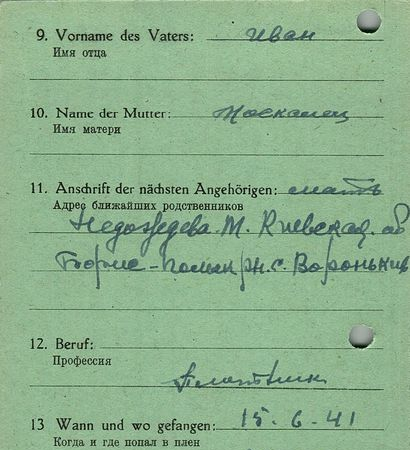 9. Vorname des Vaters: Иван
Имя отца
10. Name der Mutter:
Имя матери
11. Anschrift der nächsten Angehörigen: мать
Адрес ближайших родственников
М. Киевская об
р-н. с. Вороньків
12. Beruf:
Профессия
Плотник
13 Wann und wo gefangen: 15-6-41
Когда и где попал в плен